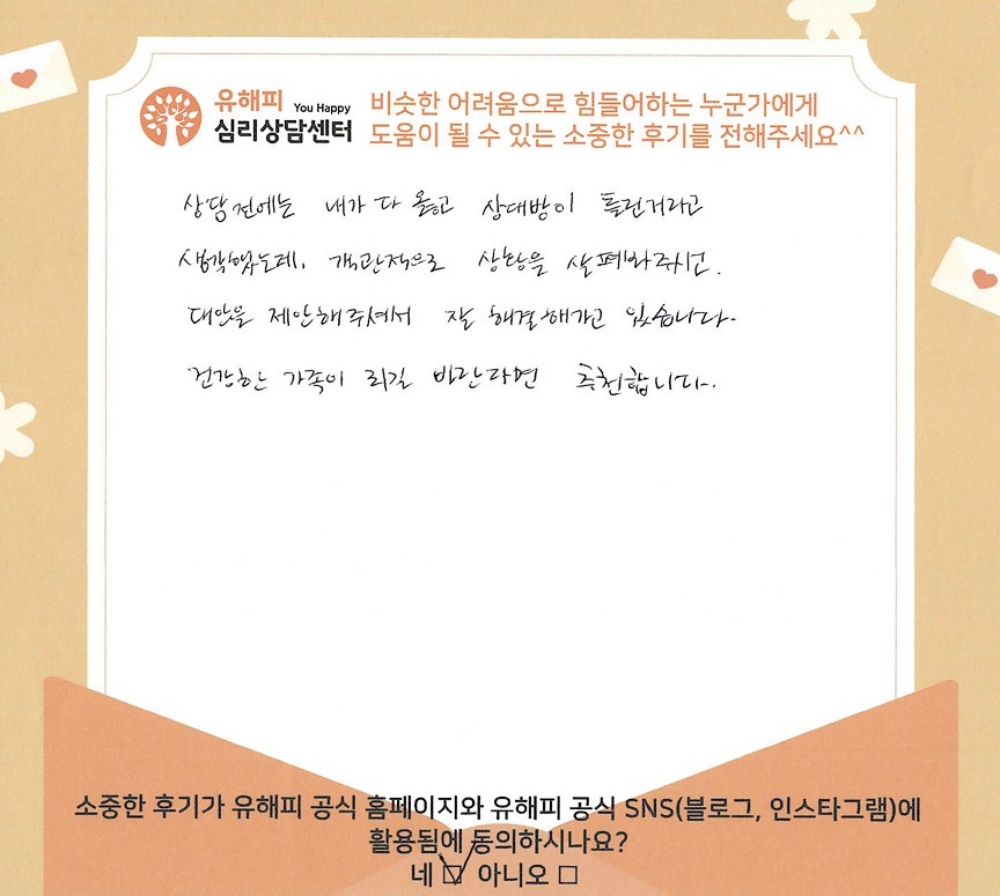 유해피 You Happy
심리상담센터
비슷한 어려움으로 힘들어하는 누군가에게
도움이 될 수 있는 소중한 후기를 전해주세요^^
상담 전에는 내가 다 옳고 상대방이 틀린거라고
생각했는데, 객관적으로 상황을 살펴봐주시고.
대안을 제안해주셔서 잘 해결해가고 있습니다.
건강한 가족이 되길 바란다면 추천합니다.
소중한 후기가 유해피 공식 홈페이지와 유해피 공식 SNS(블로그, 인스타그램)에
활용됨에 동의하시나요?
네 ☑ 아니오 □